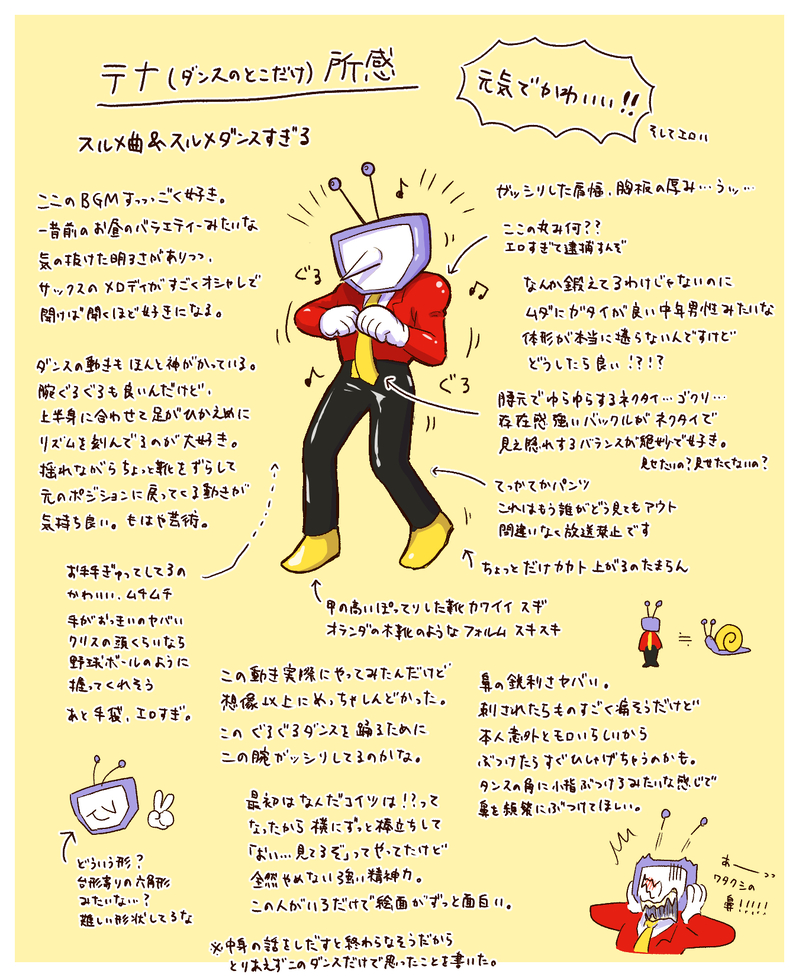 テナ(ダンスのとこだけ)所感
元気でかわいい!!
そしてエロい
スルメ曲&スルメダンスすぎる
ここのBGMすっっっごく好き。
一昔前のお昼のバラエティーみたいな
気の抜けた明るさがありつつ、
サックスのメロディがすごくオシャレで
聞けば聞くほど好きになる。
ダンスの動きもほんと神がかっている。
腕ぐるぐるも良いんだけど、
上半身に合わせて足がひかえめに
リズムを刻んでるのが大好き。
揺れながらちょっと靴をずらして
元のポジションに戻ってくる動きが
気持ち良い。もはや芸術。
お手手ぎゅってしてるの
かわいい、ムチムチ
手がおっきいのヤバい
クリスの頭くらいなら
野球ボールのように
握ってくれそう
あと手袋、エロすぎ。
ぐる
ぐる
ガッシリした肩幅、胸板の厚み…うッ…
ここの丸み何??
エロすぎて逮捕すんぞ
なんか鍛えてるわけじゃないのに
ムダにガタイが良い中年男性みたいな
体形が本当に堪らないんですけど
どうしたら良い!?!?
腰元でゆらゆらするネクタイ…ゴクリ…
存在感強いバックルがネクタイで
見え隠れするバランスが絶妙で好き。
見せたいの?見せたくないの?
てっかてかパンツ
これはもう誰がどう見てもアウト
間違いなく放送禁止です
ちょっとだけカカト上がるのたまらん
甲の高いぽってりした靴カワイイ スギ
オランダの木靴のようなフォルム スキスキ
≒
この動き実際にやってみたんだけど
想像以上にめっちゃしんどかった。
このぐるぐるダンスを踊るために
この腕ガッシリしてるのかな。
鼻の鋭利さヤバい。
刺されたらものすごく痛そうだけど
本人意外とモロいらしいから
ぶつけたらすぐひしゃげちゃうのかも。
タンスの角に小指ぶつけるみたいな感じで
鼻を頻発にぶつけてほしい。
最初はなんだコイツは!?って
なったから横にずっと棒立ちして
「おい…見てるぞ」ってやってたけど
全然やめない強い精神力。
この人がいるだけで絵面がずっと面白い。
どういう形?
台形寄りの六角形
みたいない?
難しい形状してるな
あーーっっ
ワタクシの
鼻!!!!!
※中身の話をしだすと終わらなそうだから
とりあえずこのダンスだけで思ったことを書いた。